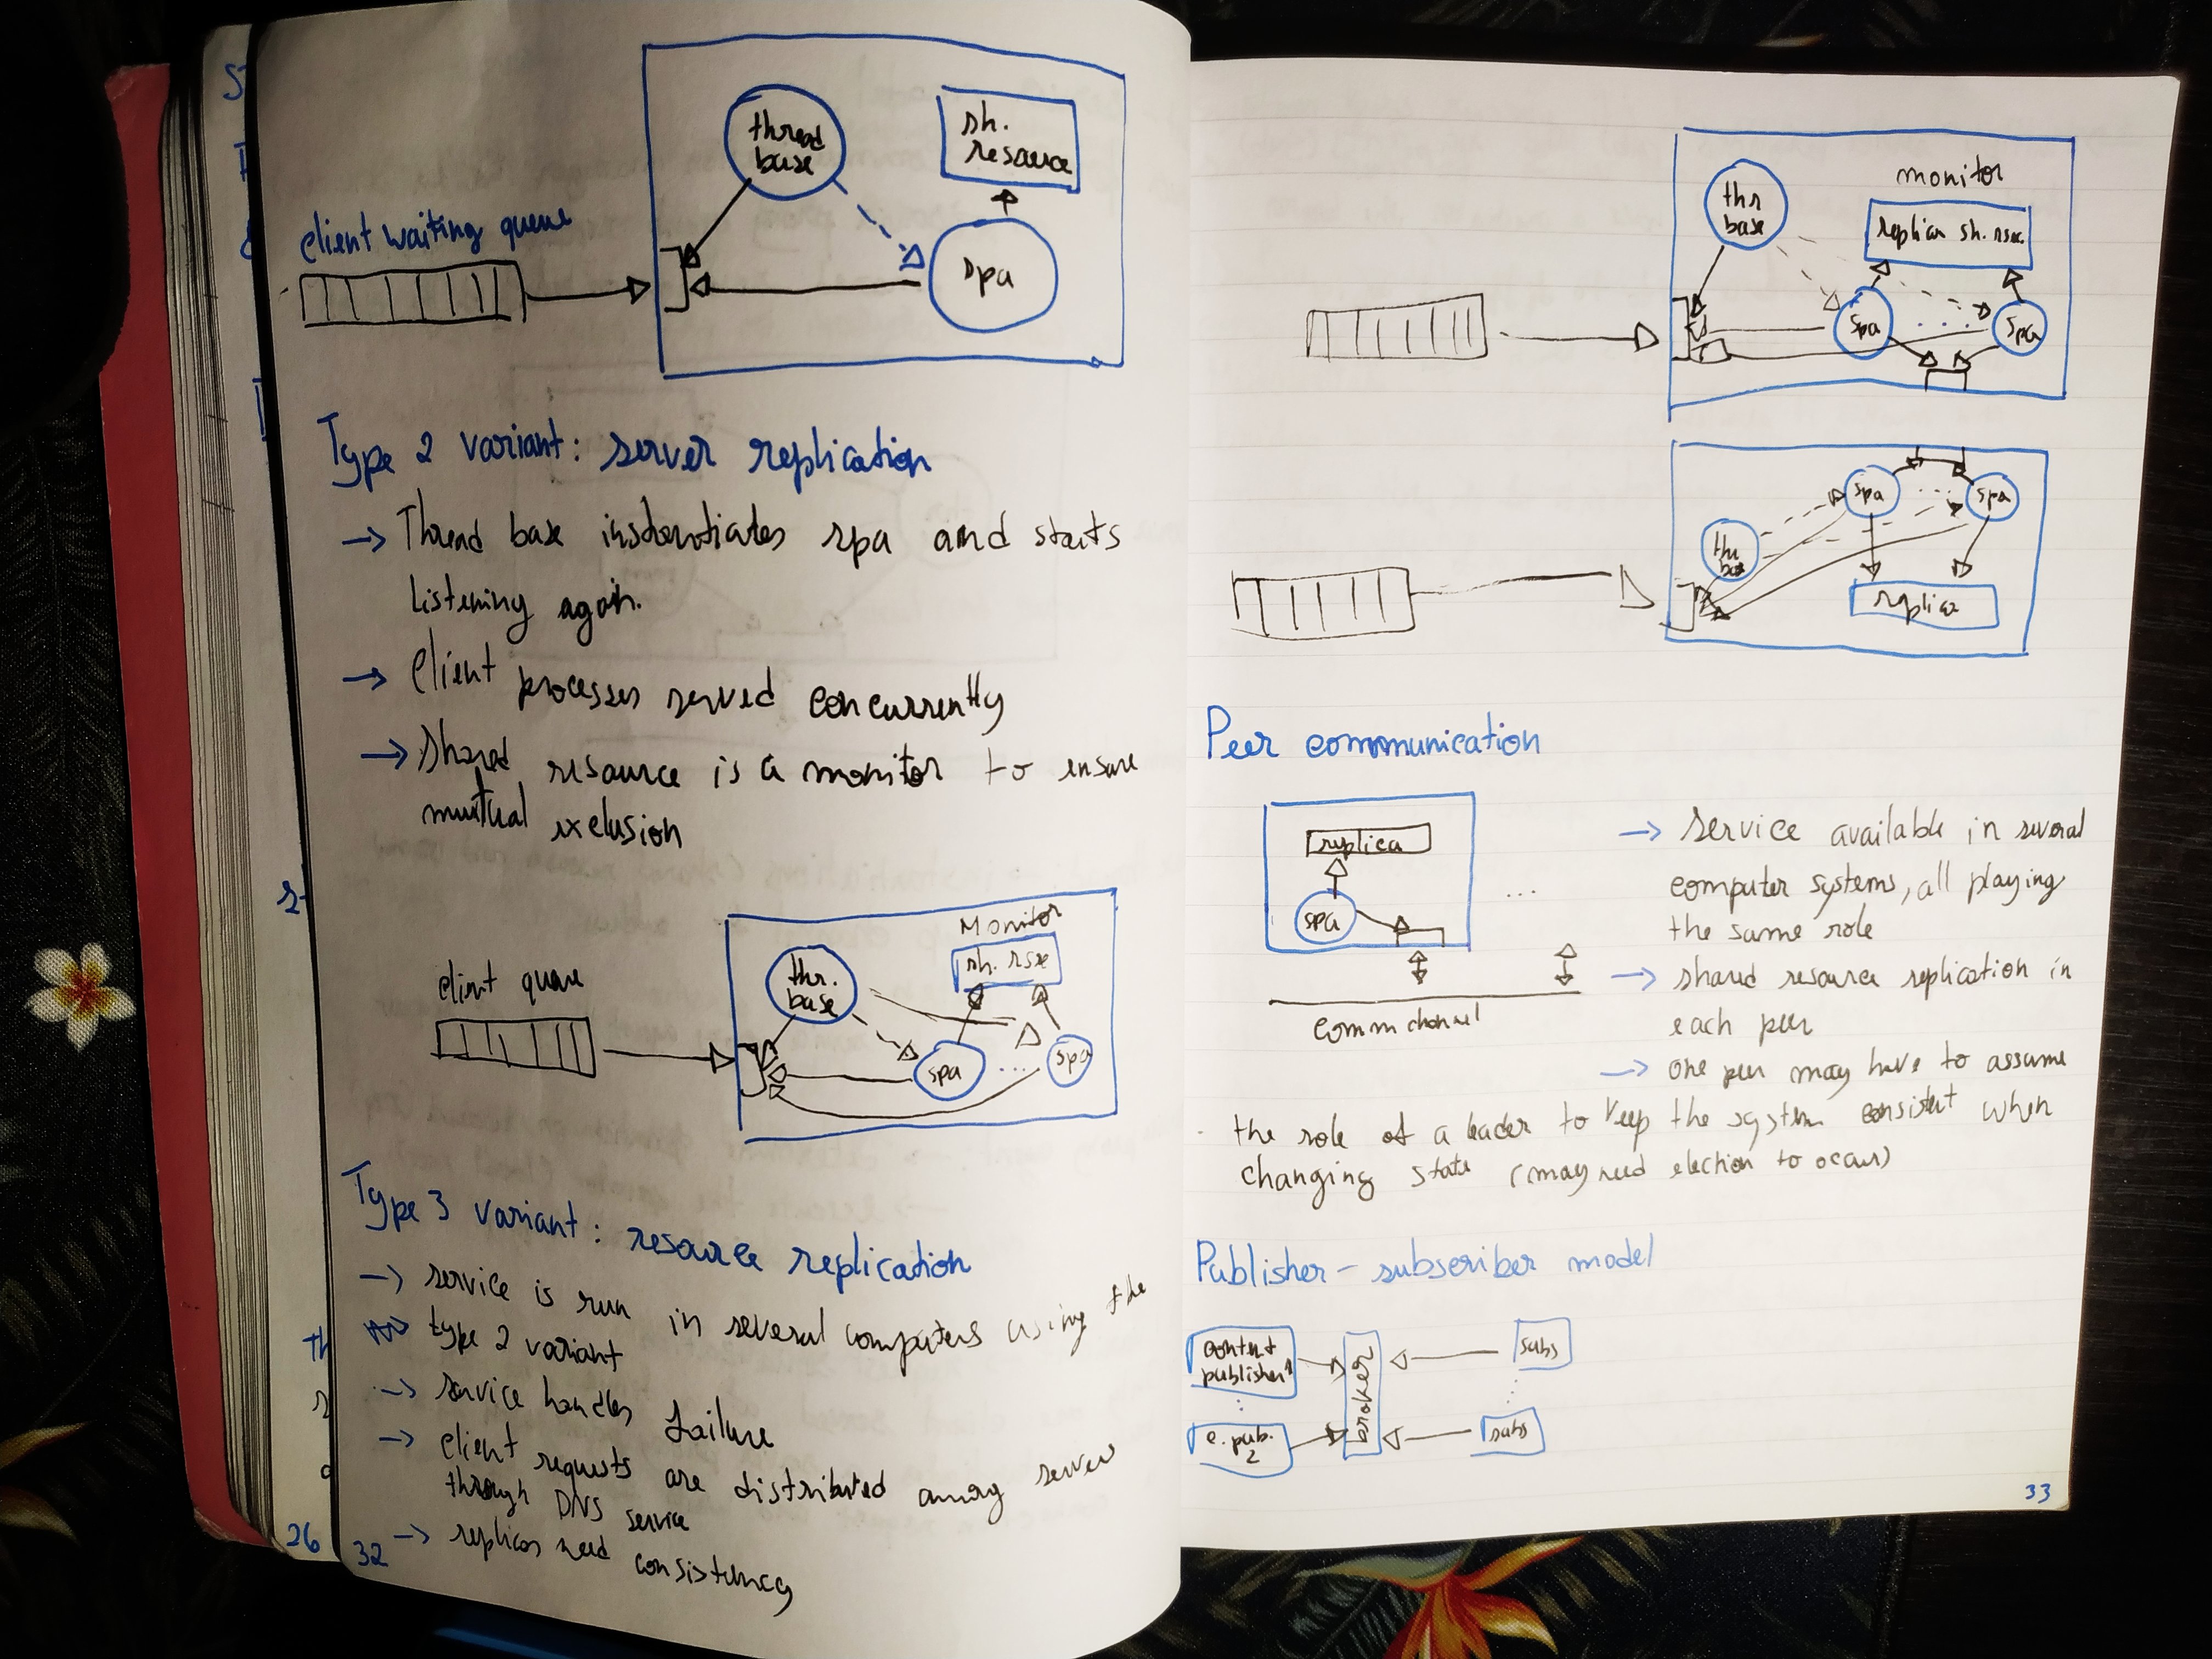 thread
base
sh.
resource
client waiting queue
spa
Type 2 variant: server replication
→ Thread base instantiates spa and starts
listening again.
→ Client processes served concurrently
→ Shared resource is a monitor to ensure
mutual exclusion
Monitor
thr.
base
sh. rsxe
client queue
spa
...
spa
Type 3 variant: resource replication
→ service is run in several computers using the
type 2 variant
→ service handles failure
→ client requests are distributed among server
through DNS service
→ replicas need consistency
26
32
monitor
thr
base
replica sh. rsxc.
spa
...
spa
spa
...
spa
thr
base
replica
Peer communication
replica
spa
...
comm channel
→ service available in several
computer systems, all playing
the same role
→ shared resource replication in
each peer
→ one peer may have to assume
the role of a leader to keep the system consistent when
changing state (may need election to occur)
Publisher - subscriber model
content
publisher 1
broker
subs
c. pub.
2
subs
33